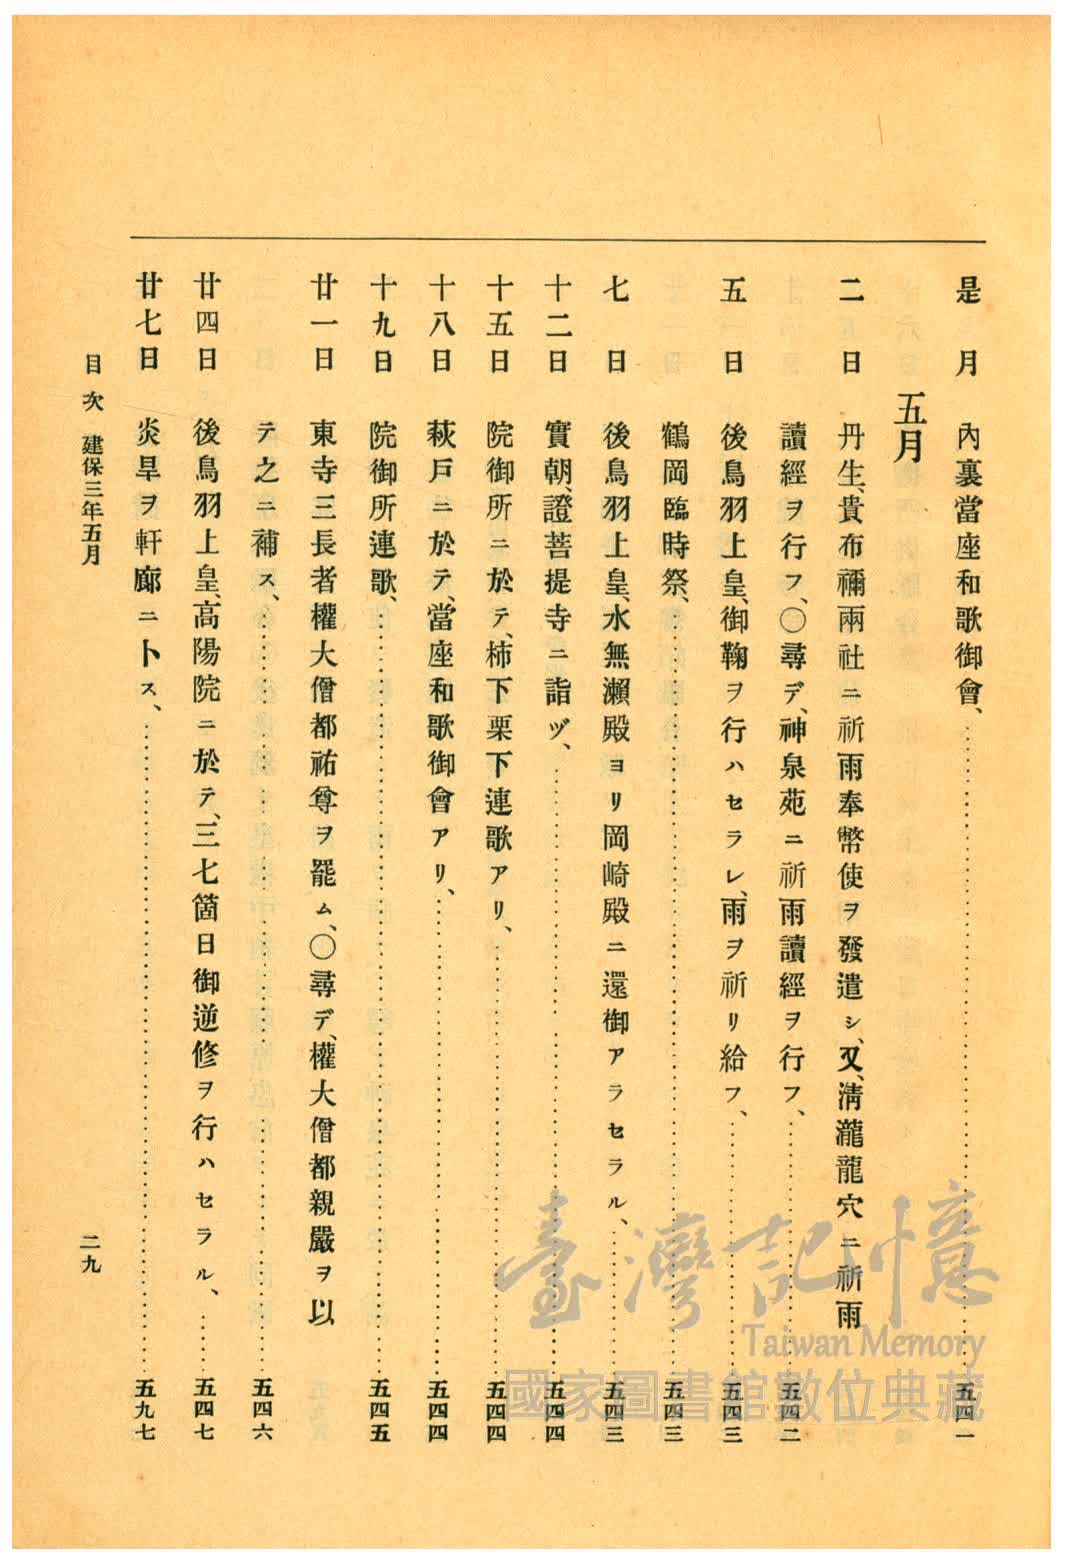 是月 內裏當座和歌御會、……五四一
五月
二日 丹生、貴布禰兩社ニ祈雨奉幣使ヲ發遣シ、又、淸瀧龍穴ニ祈雨
讀經ヲ行フ、〇尋デ、神泉苑ニ祈雨讀經ヲ行フ、……五四二
五日 後鳥羽上皇、御鞠ヲ行ハセラレ、雨ヲ祈リ給フ、……五四三
鶴岡臨時祭、……五四三
七日 後鳥羽上皇、水無瀨殿ヨリ岡崎殿ニ還御アラセラル、……五四三
十二日 實朝、證菩提寺ニ詣ヅ、……五四四
十五日 院御所ニ於テ、柿下栗下連歌アリ、……五四四
十八日 萩戸ニ於テ、當座和歌御會アリ、……五四四
十九日 院御所連歌、……五四五
廿一日 東寺三長者權大僧都祐尊ヲ罷ム、〇尋デ、權大僧都親嚴ヲ以
テ之ニ補ス、……五四六
廿四日 後鳥羽上皇、高陽院ニ於テ、三七箇日御逆修ヲ行ハセラル、……五四七
廿七日 炎旱ヲ軒廊ニ卜ス、……五九七
目次 建保三年五月
二九
臺灣記憶
Taiwan Memory
國家圖書館數位典藏